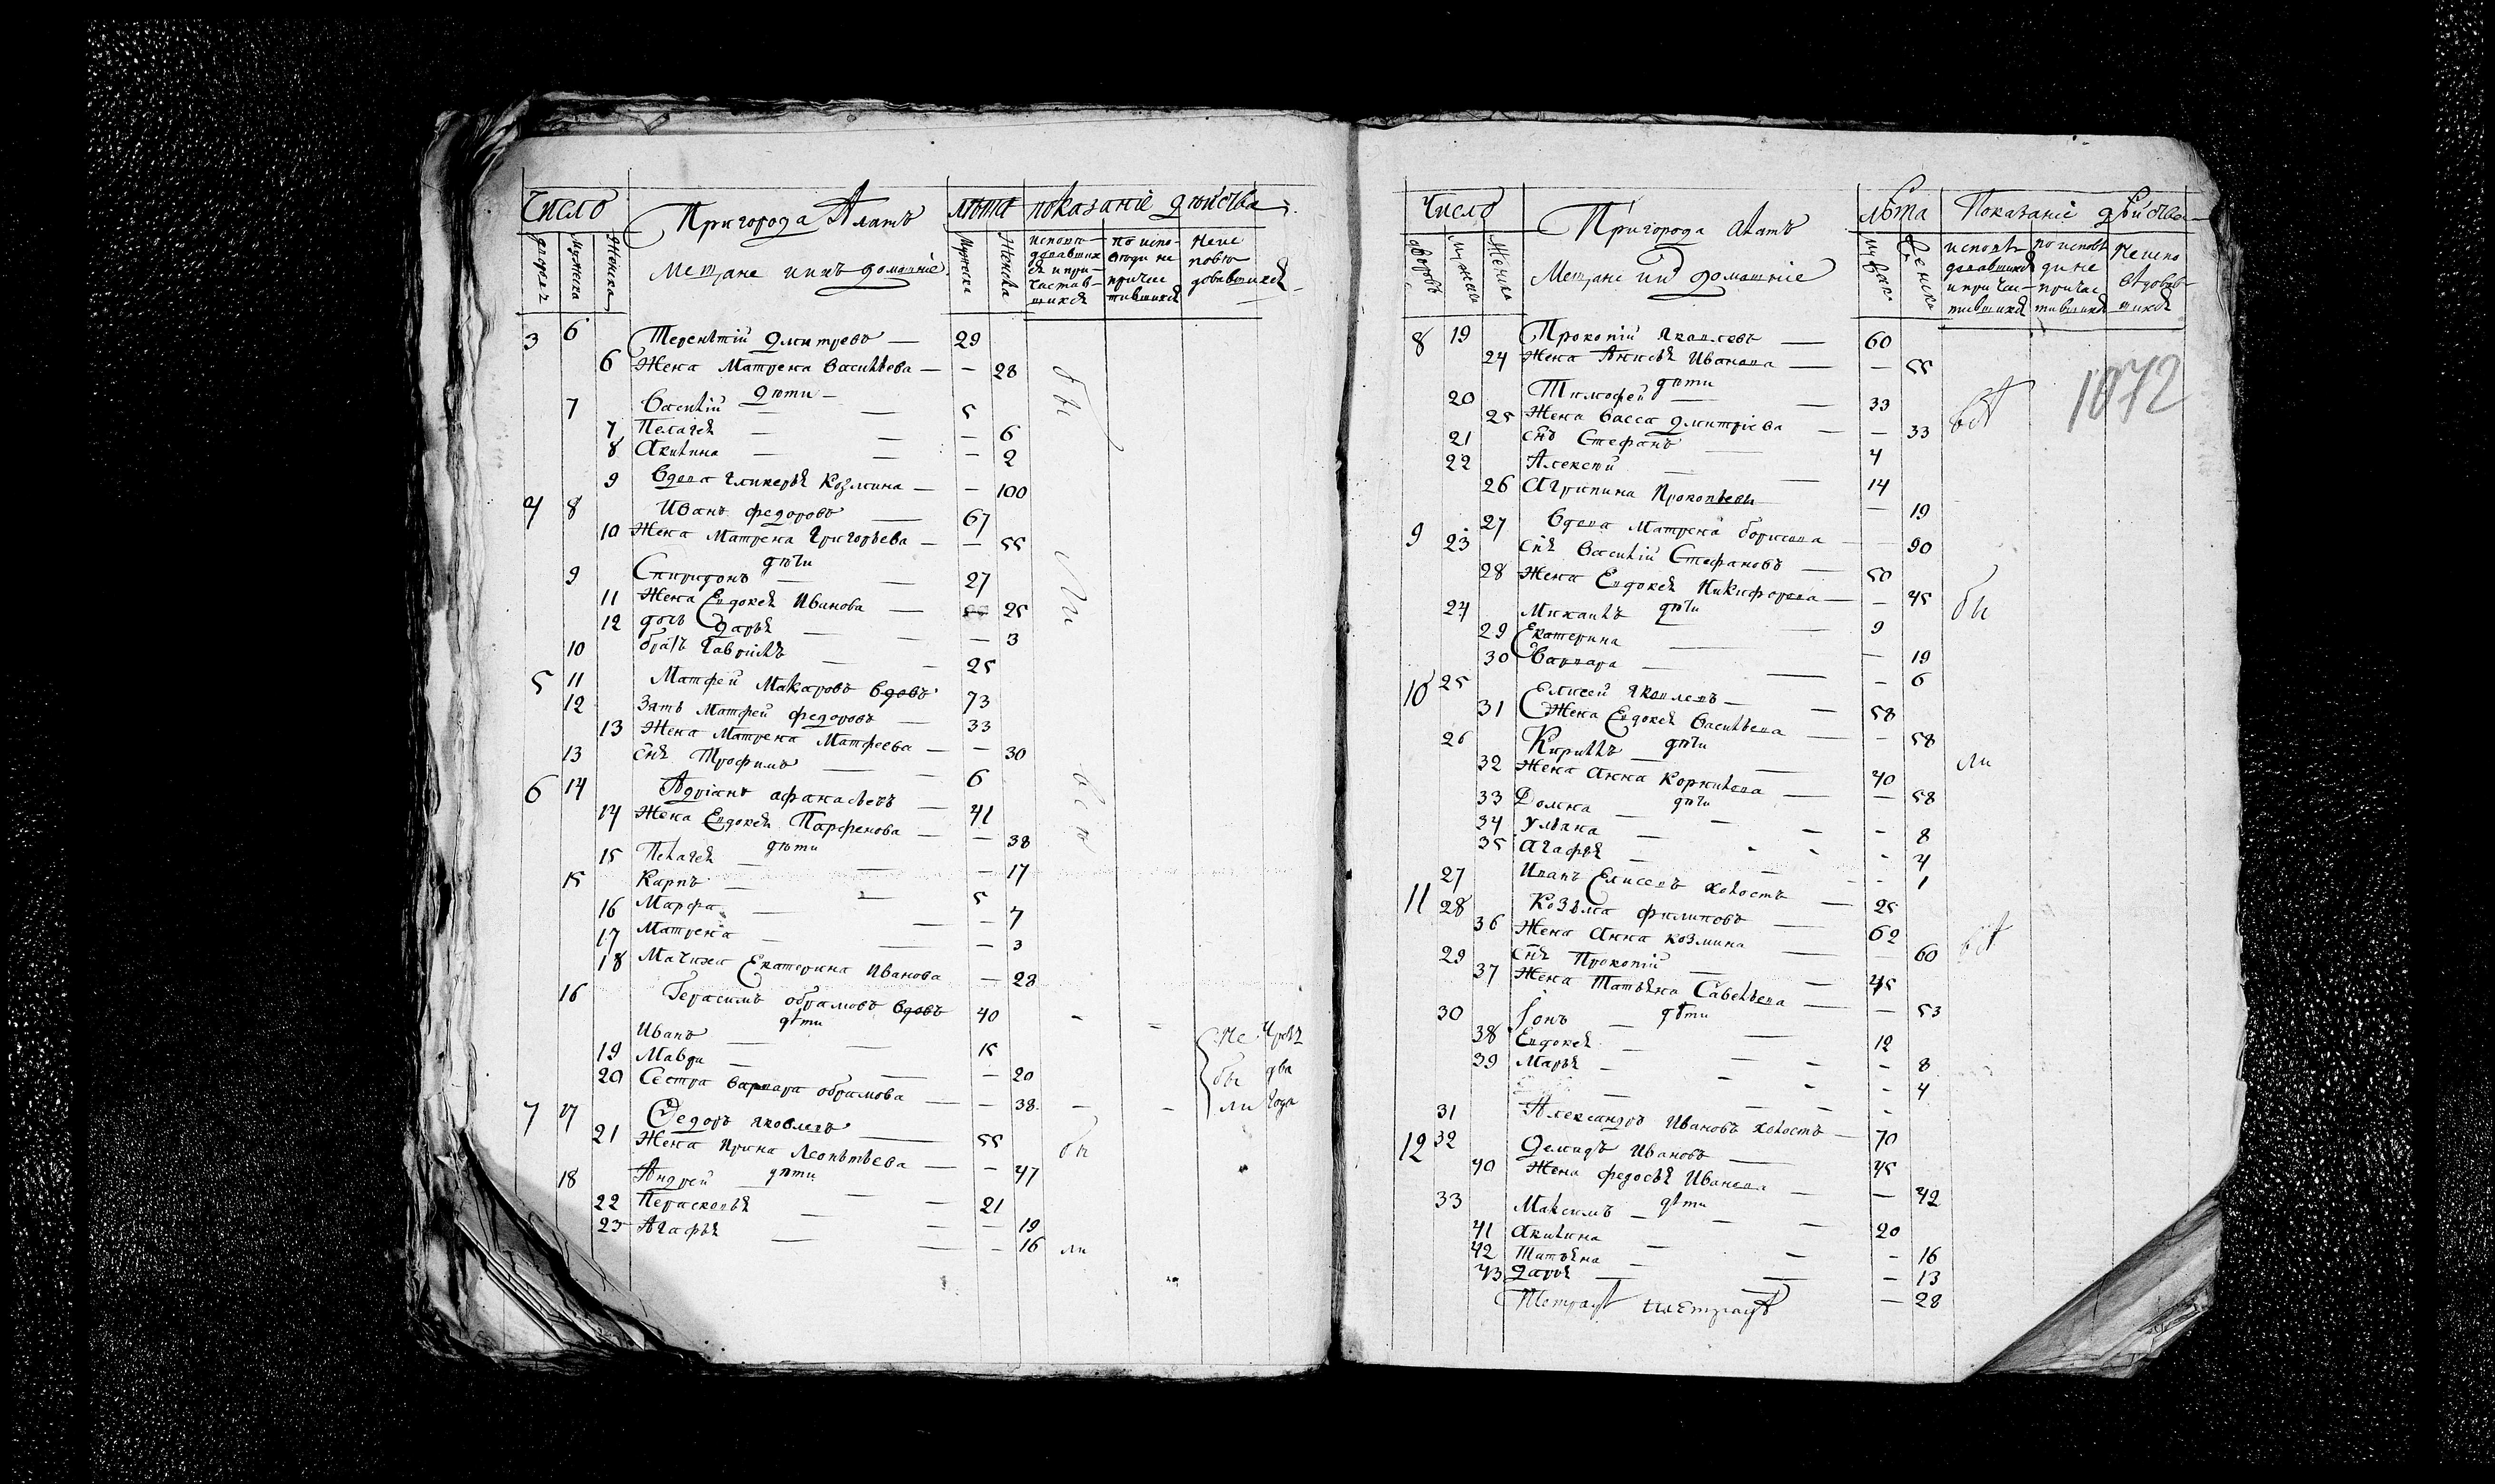 Число Пригорода Алатъ лѣта показаніе дѣйства
дворовъ Мужеска Женска Мещане иихъ домашніе Мужеска Женска исповѣдавшихся ипричастившихся по исповѣди не причастившихся Неисповѣдавшихся
3 6 Терентій Дмитревъ — 29
6 Жена Матрена Васильева — — 28
дѣти —
7 Василій — — 5
7 Пелагея — — — 6
8 Акилина — — — 2
9 Вдова Гликерья Козмина — — 100
4 8 Иванъ Федоровъ — 67
10 Жена Матрена Григорьева — — 55
дѣти
9 Спиридонъ — — 27
11 Жена Евдокея Иванова — 25
12 дочь Дарья — — — 3
10 братъ Гаврилъ — — 25
5 11 Матфей Макаровъ вдовъ 73
12 Зять Матфей Федоровъ — 33
13 Жена Матрена Матфеева — — 30
13 снъ Трофимъ — — 6
6 14 Адріанъ Афанасьевъ — 41
14 Жена Евдокея Парфенова — — 38
дѣти
15 Пелагея — — — 17
15 Карпъ — — 5
16 Марфа — — — 7
17 Матрена — — — 3
18 Мачиха Екатерина Иванова — 28
16 Герасимъ Обрамовъ вдовъ 40
дѣти
Иванъ — — 15
19 Мавра — — — 20
20 Сестра Варвара Обрамова — — 38
Не бы ли Чрезъ два года
7 17 Федоръ Яковлевъ — 55
21 Жена Ирина Леонтьева — — 47
18 Андрей дѣти — — 21
22 Парасковья — — — 19
23 Агафья — — — 16
бы ли всѣ
бы ли
Число Пригорода Алатъ Лѣта Показаніе дѣйства
дворовъ Мужеска Женска Мещане иихъ домашніе мужска женска исповѣдавшихся ипричастившихся по исповѣди не причастившихся Неисповѣдавшихся
1072
8 19 Прокопій Яковлевъ — 60
24 Жена Анисья Иванова — — 55
дѣти
20 Тимофей — — 33
25 Жена Васса Дмитріева — — 33
21 снъ Стефанъ — 4
22 Алексѣй — — 14
26 Агрипина Прокопьева — 19
9 27 Вдова Матрена Борисова — — 90
23 снъ Василій Стефановъ — 50
28 Жена Евдокея Никифорова — — 45
дѣти
24 Михаилъ — 9
29 Екатерина — — 19
30 Варвара — — — 6
10 25 Елисей Яковлевъ — — 58
31 Жена Евдокея Васильева — — 58
дѣти
26 Кирилъ — — 40
32 Жена Анна Корнилова — — 58
дѣти
33 Домна — — — 8
34 Ульяна — 4
35 Агафья — 1
27 Иванъ Елисеевъ холостъ — 25
11 28 Козьма Филиповъ — 62
36 Жена Анна Козмина — — 60
29 снъ Прокопій — — 45
37 Жена Татьяна Савельева — — 53
дѣти
30 Іонъ — 12
38 Евдокея — — 8
39 Марья — — 4
31 Александръ Ивановъ холостъ — 70
12 32 Демидъ Ивановъ — 45
40 Жена Федосья Иванова — — 42
дѣти
33 Максимъ — — 20
41 Акилина — — — 16
42 Татьяна — — — 13
43 Дарья — — — 28
всѣ
бы
ли
всѣ